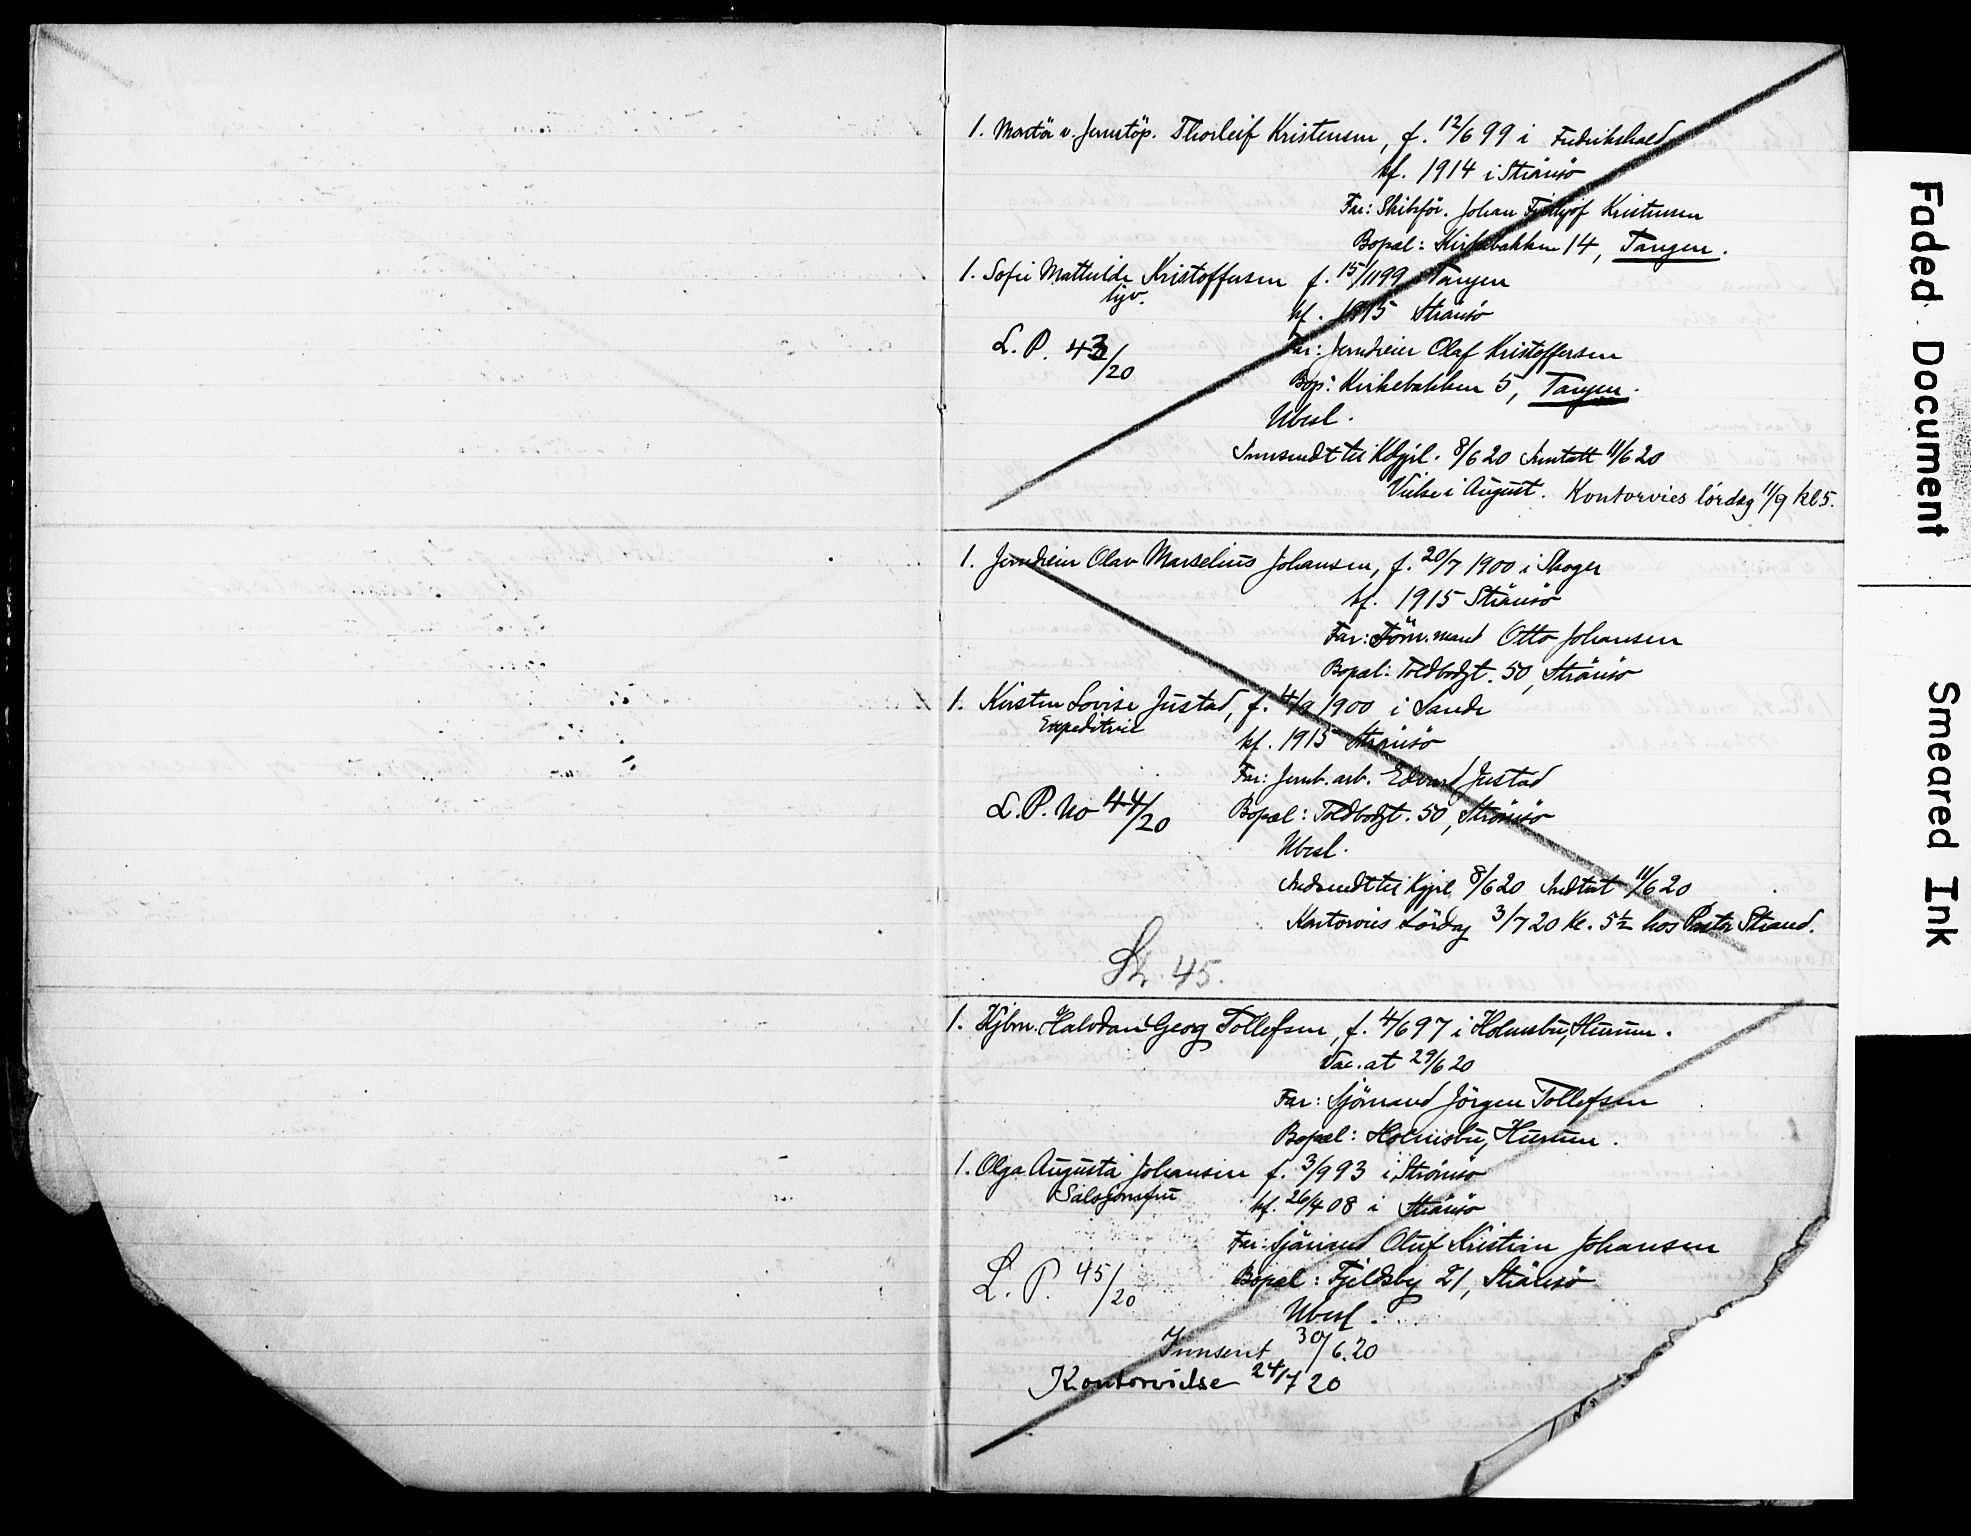 1. Montör v. Jernstöp. Thorleif Kristensen, f. 12/6 99 i Fredrikshald
kf. 1914 i Strømsö
Far: Skibsför. Johan Fridtjof Kristensen
Bopæl: Kirkebakken 14, Tangen.
1. Sofie Mathilde Kristoffersen f. 15/11 99 Tangen
kf. 1915 Strømsö
L. P. 43/20
Far: Jerndreier Olaf Kristoffersen
Bop: Kirkebakken 5, Tangen.
Ubesl.
Innsendt til 8/6 20 Inntatt 11/6 20
Vielse i August. Kontorvies lördag 11/9 kl 5.
1. Jerndreier Olav Marselius Johansen, f. 20/7 1900 i Skoger
kf. 1915 Strömsö
Far: Töm.mand Otto Johansen
Bopæl: Toldbodgt. 50, Strömsö
1. Kirsten Lovise Justad, f. 4/9 1900 i Sande
Expeditrice
kf. 1915 Strömsö
Far: Jernb. arb. Edvard Justad
L. P. No 44/20
Bopæl: Toldbodgt. 50, Strömsö
Ubesl.
Indsendt til 8/6 20 Indtat 11/6 20
Kontorvies Lördag 3/7 20 Kl. 5½ hos Pastor Strand.
Sk. 45.
1. Halvdan Georg Tollefsen, f. 4/6 97 i Holmsbu, Hurum.
Vac. at 29/6 20
Far: Sjömand Jörgen Tollefsen
Bopæl: Holmsbu, Hurum.
1. Olga Augusta Johansen f. 3/9 93 i Strömsö
Salsjomfru
kf. 26/4 08 i Strömsö
Far: Sjömand Oluf Kristian Johansen
L. P. 45/20
Bopæl: Fjeldsby 21, Strömsö
Ubesl.
Innsent 30/6.20
Kontorvielse 24/7 20
Faded Document
Smeared Ink